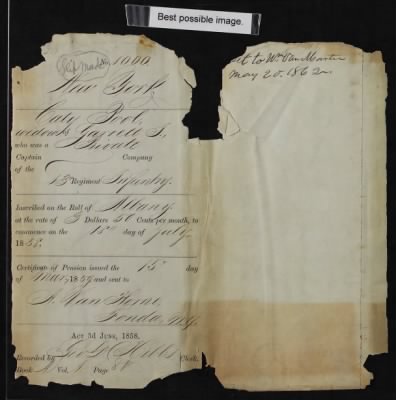 Best possible image.
No. 1000
New York
Caty Pool,
widow of Garrett S,
who was a Private
Captain Company
of the
13 Regiment Infantry.
Inscribed on the Roll of Albany
at the rate of 3 Dollars 50 Cents per month, to
commence on the 15th day of July,
1858.
Certificate of Pension issued the 15th day
of Mar, 1859 and sent to
F. Van Horne,
Fonda, N.Y.
Act 3d June, 1858.
Recorded by Geo. Clerk.
Book A Vol. 1 Page 80
to Wm. Van
May 20. 1862